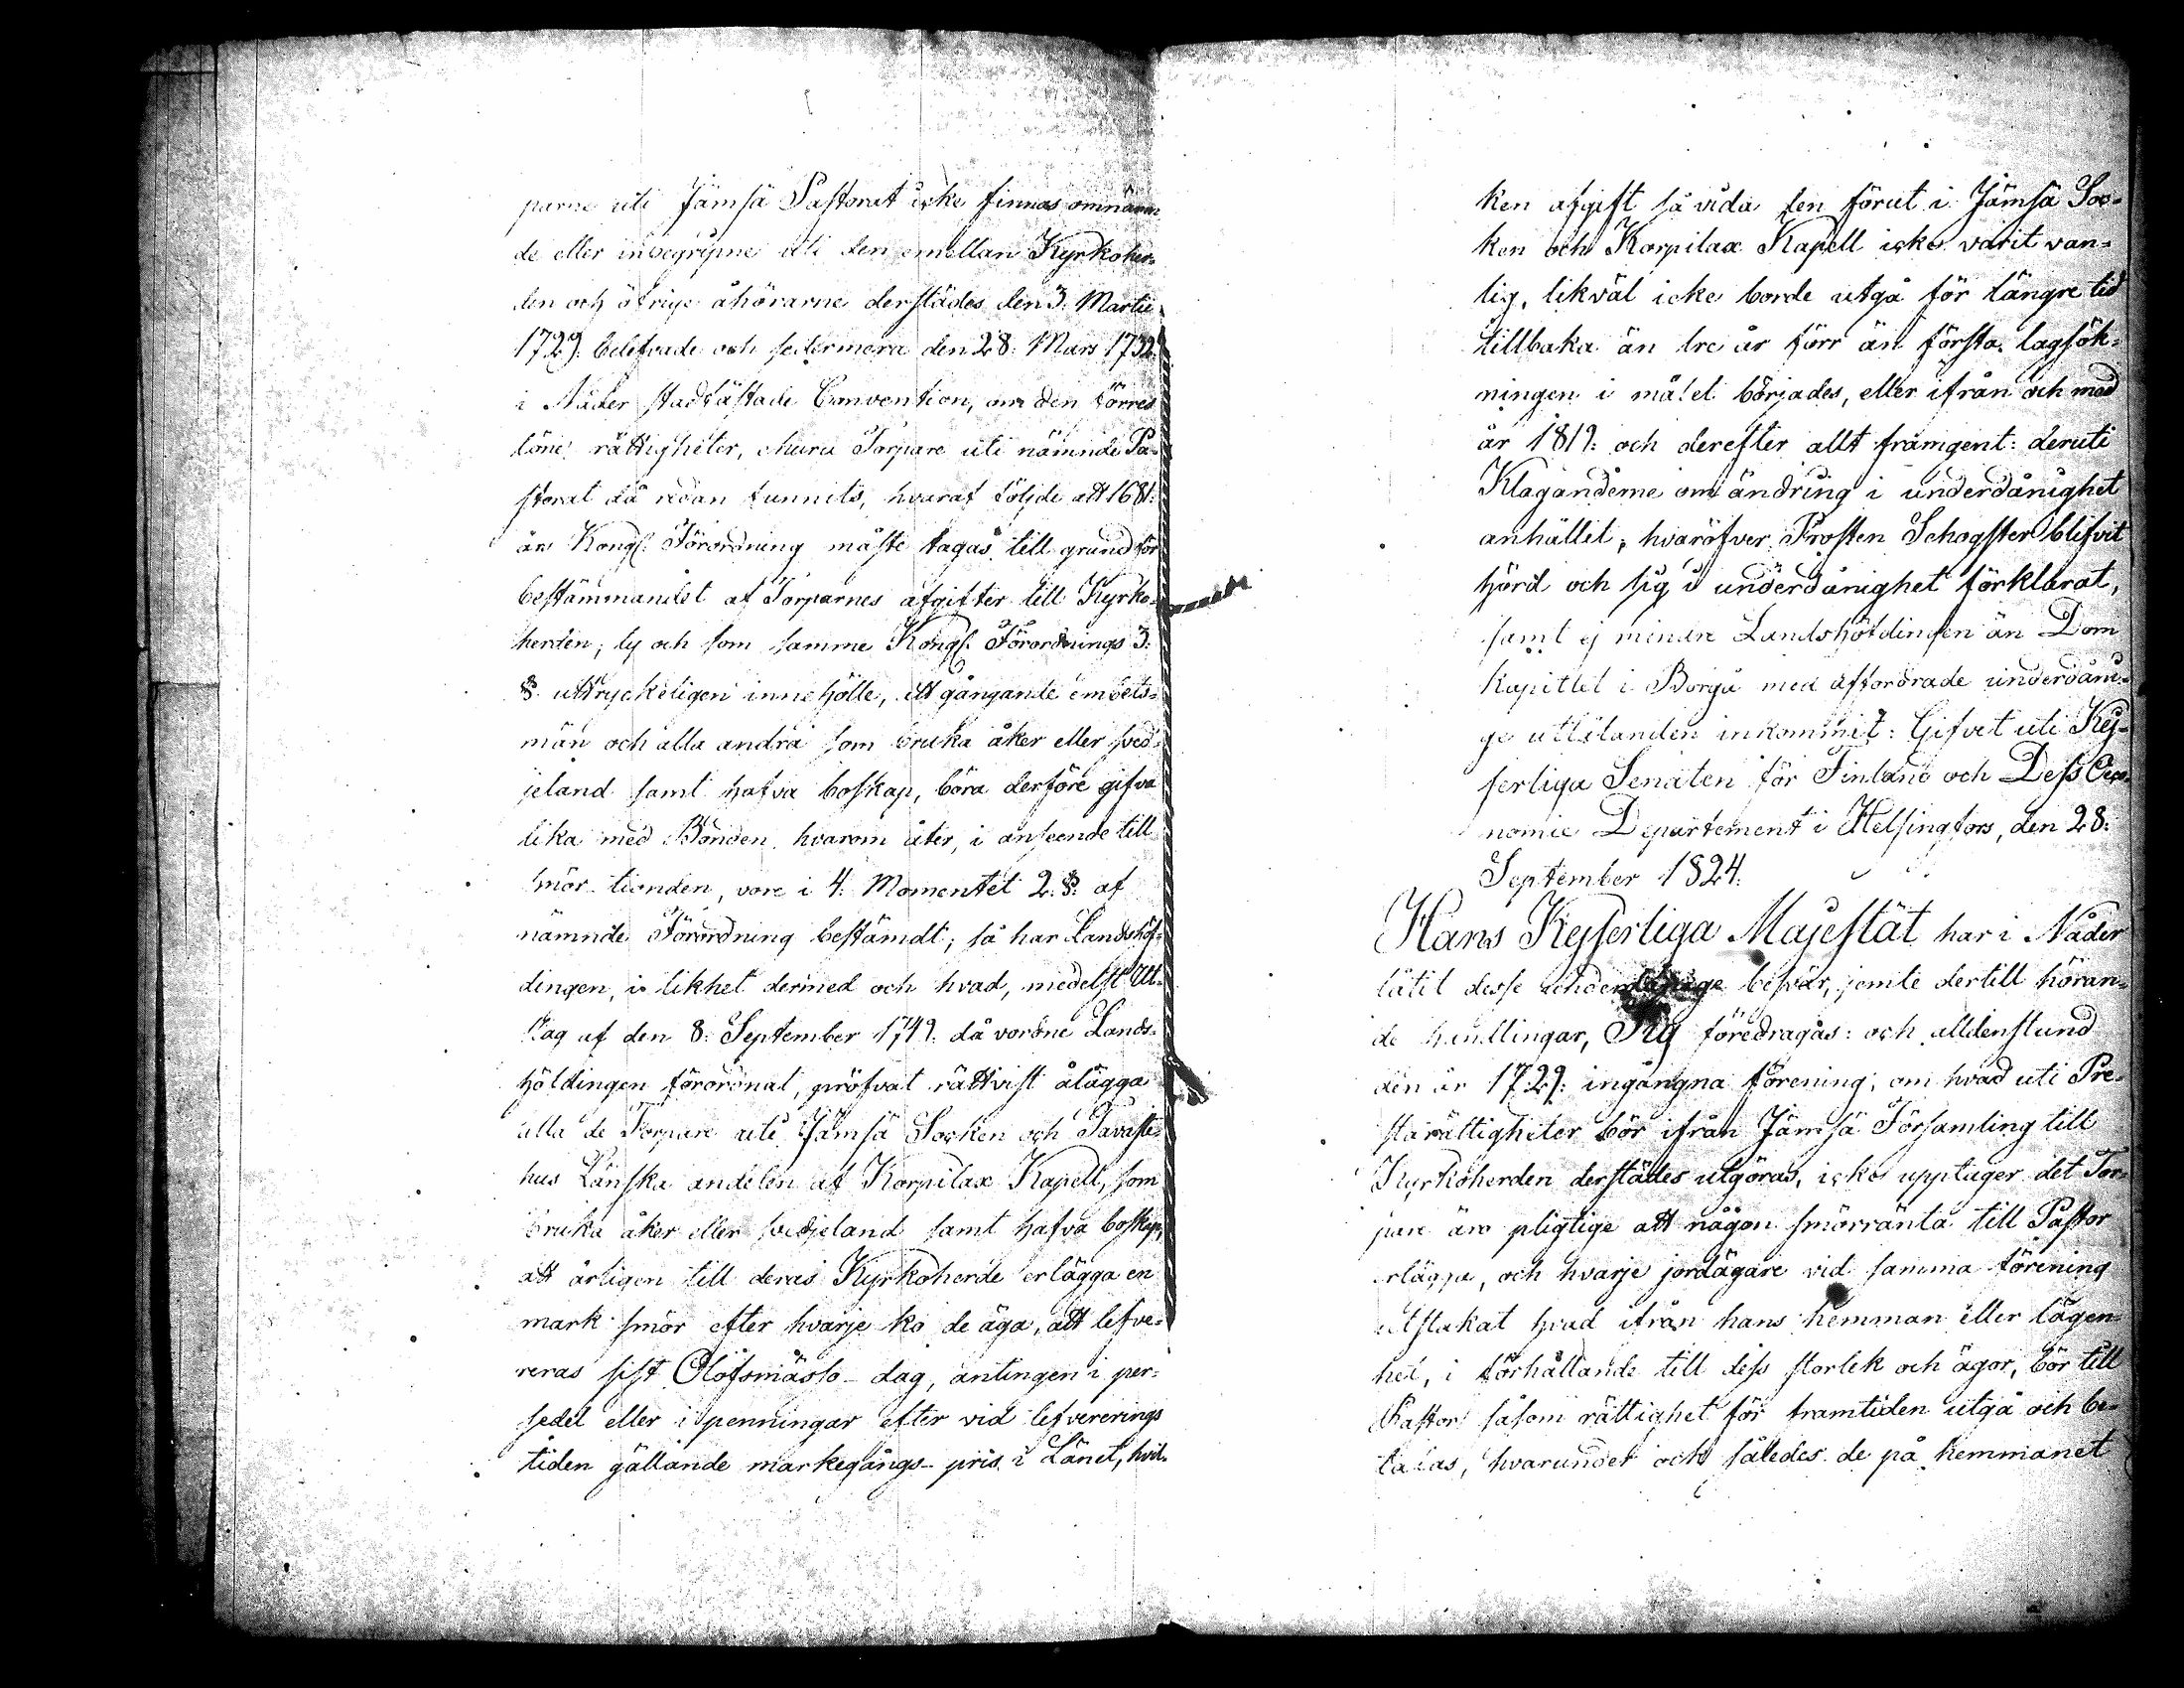 parne uti Jämsä Pastorat icke finnas omnämn
de eller inbegripne uti den emellan Kyrkoher-
den och öfrige åhörarne derstädes den 3. Martii
1729. belefvade och sedermera den 28. Mars 1732.
i Nåder stadfästade Convention, om den förres
löne rättigheter, ehuru Torpare uti nämnde Pa-
storat då redan funnits, hvaraf följde att 1681.
års Kongl. Förordning måste tagas till grund för
bestämmandet af Torparnes afgifter till Kyrko-
herden; ty och som samme Kongl. Förordnings 3.
§. uttryckeligen innehölle, att gångande embets-
män och alla andra som bruka åker eller sved-
jeland samt hafva boskap, böra derföre gifva
lika med Bonden, hvarom åter, i anseende till
smör-tionden, vore i 4. Momentet 2. §. af
nämnde Förordning bestämdt; så har Landshöf-
dingen, i likhet dermed och hvad, medelst Ut-
slag af den 8. September 1749. då vordne Lands-
höfdingen förordnat, pröfvat rättvist ålägga
alla de Torpare uti Jämsä Socken och Tavaste-
hus Länska andelen af Korpilax Kapell, som
bruka åker eller svedjeland samt hafva boskap,
att årligen till deras Kyrkoherde erlägga en
mark smör efter hvarje ko de äga, att lefve-
reras sist Olofsmässo-dag, antingen i per-
sedel eller i penningar efter vid lefvererings
tiden gällande markegångs-pris i Länet, hvil-
ken afgift så vida den förut i Jämsä Soc-
ken och Korpilax Kapell icke varit van-
lig, likväl icke borde utgå för längre tid
tillbaka än tre år förr än första lagsök-
ningen i målet börjades, eller ifrån och med
år 1819. och derefter allt framgent: deruti
Klaganderne om ändring i underdånighet
anhållit; hvaröfver Prosten Schogster blifvit
hörd och sig i underdånighet förklarat,
samt ej mindre Landshöfdingen än Dom
Kapitlet i Borgå med affordrade underdåni-
ge utlåtanden inkommit: Gifvet uti Kej-
serliga Senaten för Finland och Dess Oeco-
nomie Departement i Helsingfors, den 28.
September 1824.
Hans Kejserliga Majestät har i Nåder
låtit desse underdånige besvär, jemte dertill höran-
de handlingar, Sig föredragas: och alldenstund
den år 1729. ingångna förening, om hvad uti Pre-
strättigheter bör ifrån Jämsä Församling till
Kyrkoherden derstädes utgöras, icke upptager det Tor-
pare äro pligtige att någon smörränta till Pastor
erlägga, och hvarje jordägare vid samma förening
utstakat hvad ifrån hans hemman eller lägen-
het, i förhållande till dess storlek och ägor, bör till
Pastor såsom rättighet för framtiden utgå och be-
talas, hvarunder och således de på hemmanet